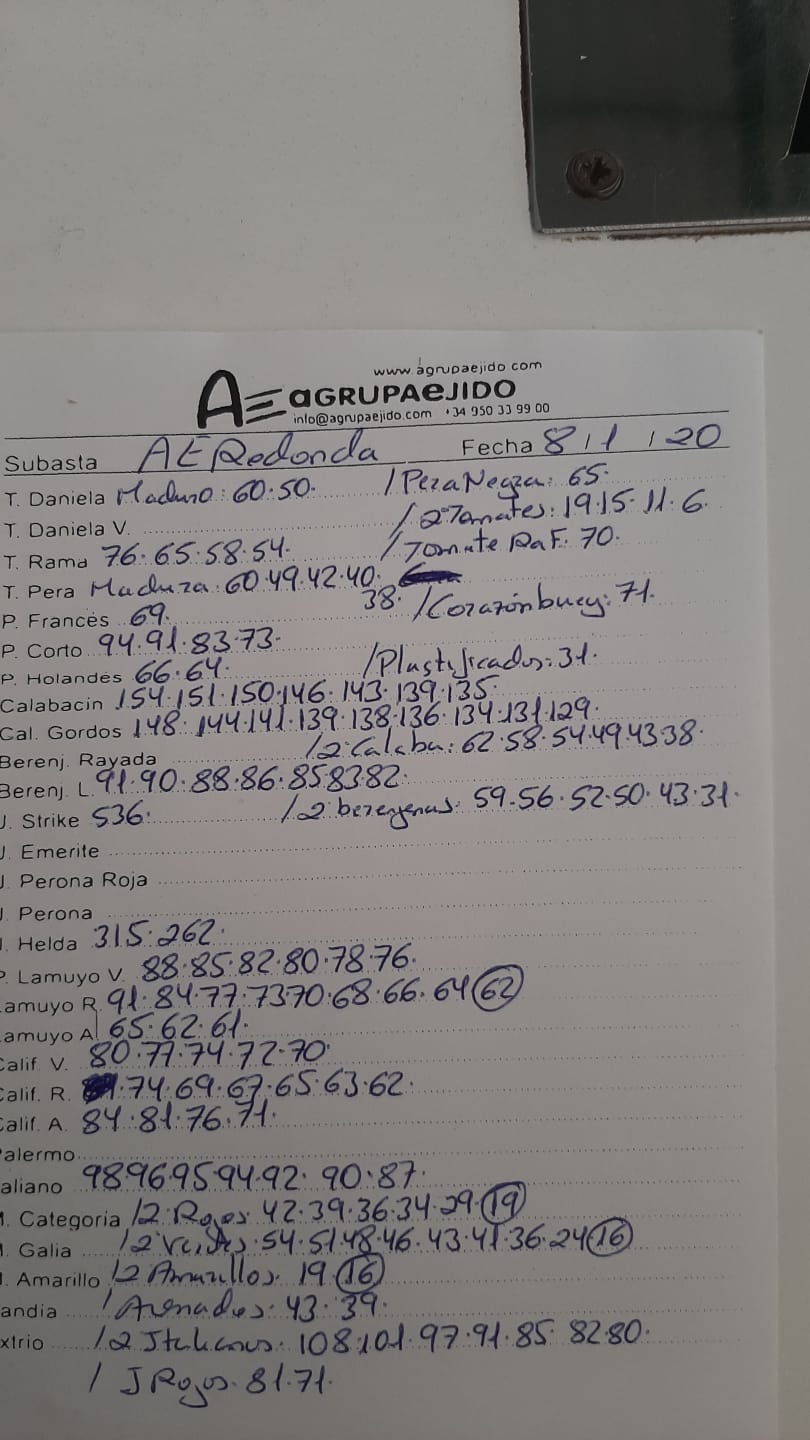 www.agrupaejido.com
AE aGRUPAeJIDO
info@agrupaejido.com +34 950 33 99 00
Subasta AE Redonda Fecha 8/1/20
T. Daniela Maduro: 60.50. / Pera Negra: 65.
T. Daniela V. / 2ª Tomates: 19.15.11.6.
T. Rama 76.65.58.54. / Tomate Raf: 70.
T. Pera Madura: 60.49.42.40.
38. / Corazón buey: 71.
P. Francés 69.
P. Corto 94.91.83.73.
P. Holandés 66.64. / Plastificados: 31.
Calabacin 154.151.150.146.143.139.135.
Cal. Gordos 148.144.141.139.138.136.134.131.129.
Berenj. Rayada / 2ª Calaba: 62.58.54.49.43.38.
Berenj. L. 91.90.88.86.85.83.82.
J. Strike 536. / 2ª berenjenas: 59.56.52.50.43.31.
J. Emerite
J. Perona Roja
J. Perona
. Helda 315.262.
P. Lamuyo V. 88.85.82.80.78.76.
amuyo R. 91.84.77.73.70.68.66.64 62
amuyo A 65.62.61.
Calif. V. 80.77.74.72.70.
Calif. R. 74.69.67.65.63.62.
Calif. A. 84.81.76.71.
Palermo
aliano 98.96.95.94.92.90.87.
. Categoria / 2ª Rojos 42.39.36.34.29. 19
. Galia / 2ª Verdes: 54.51.48.46.43.41.36.24 16
. Amarillo / 2ª Amarillos: 19. 16
andia / Arenados: 43.39.
xtrio / 2ª Italianos: 108.101.97.91.85.82.80.
/ J Rojos. 81.71.